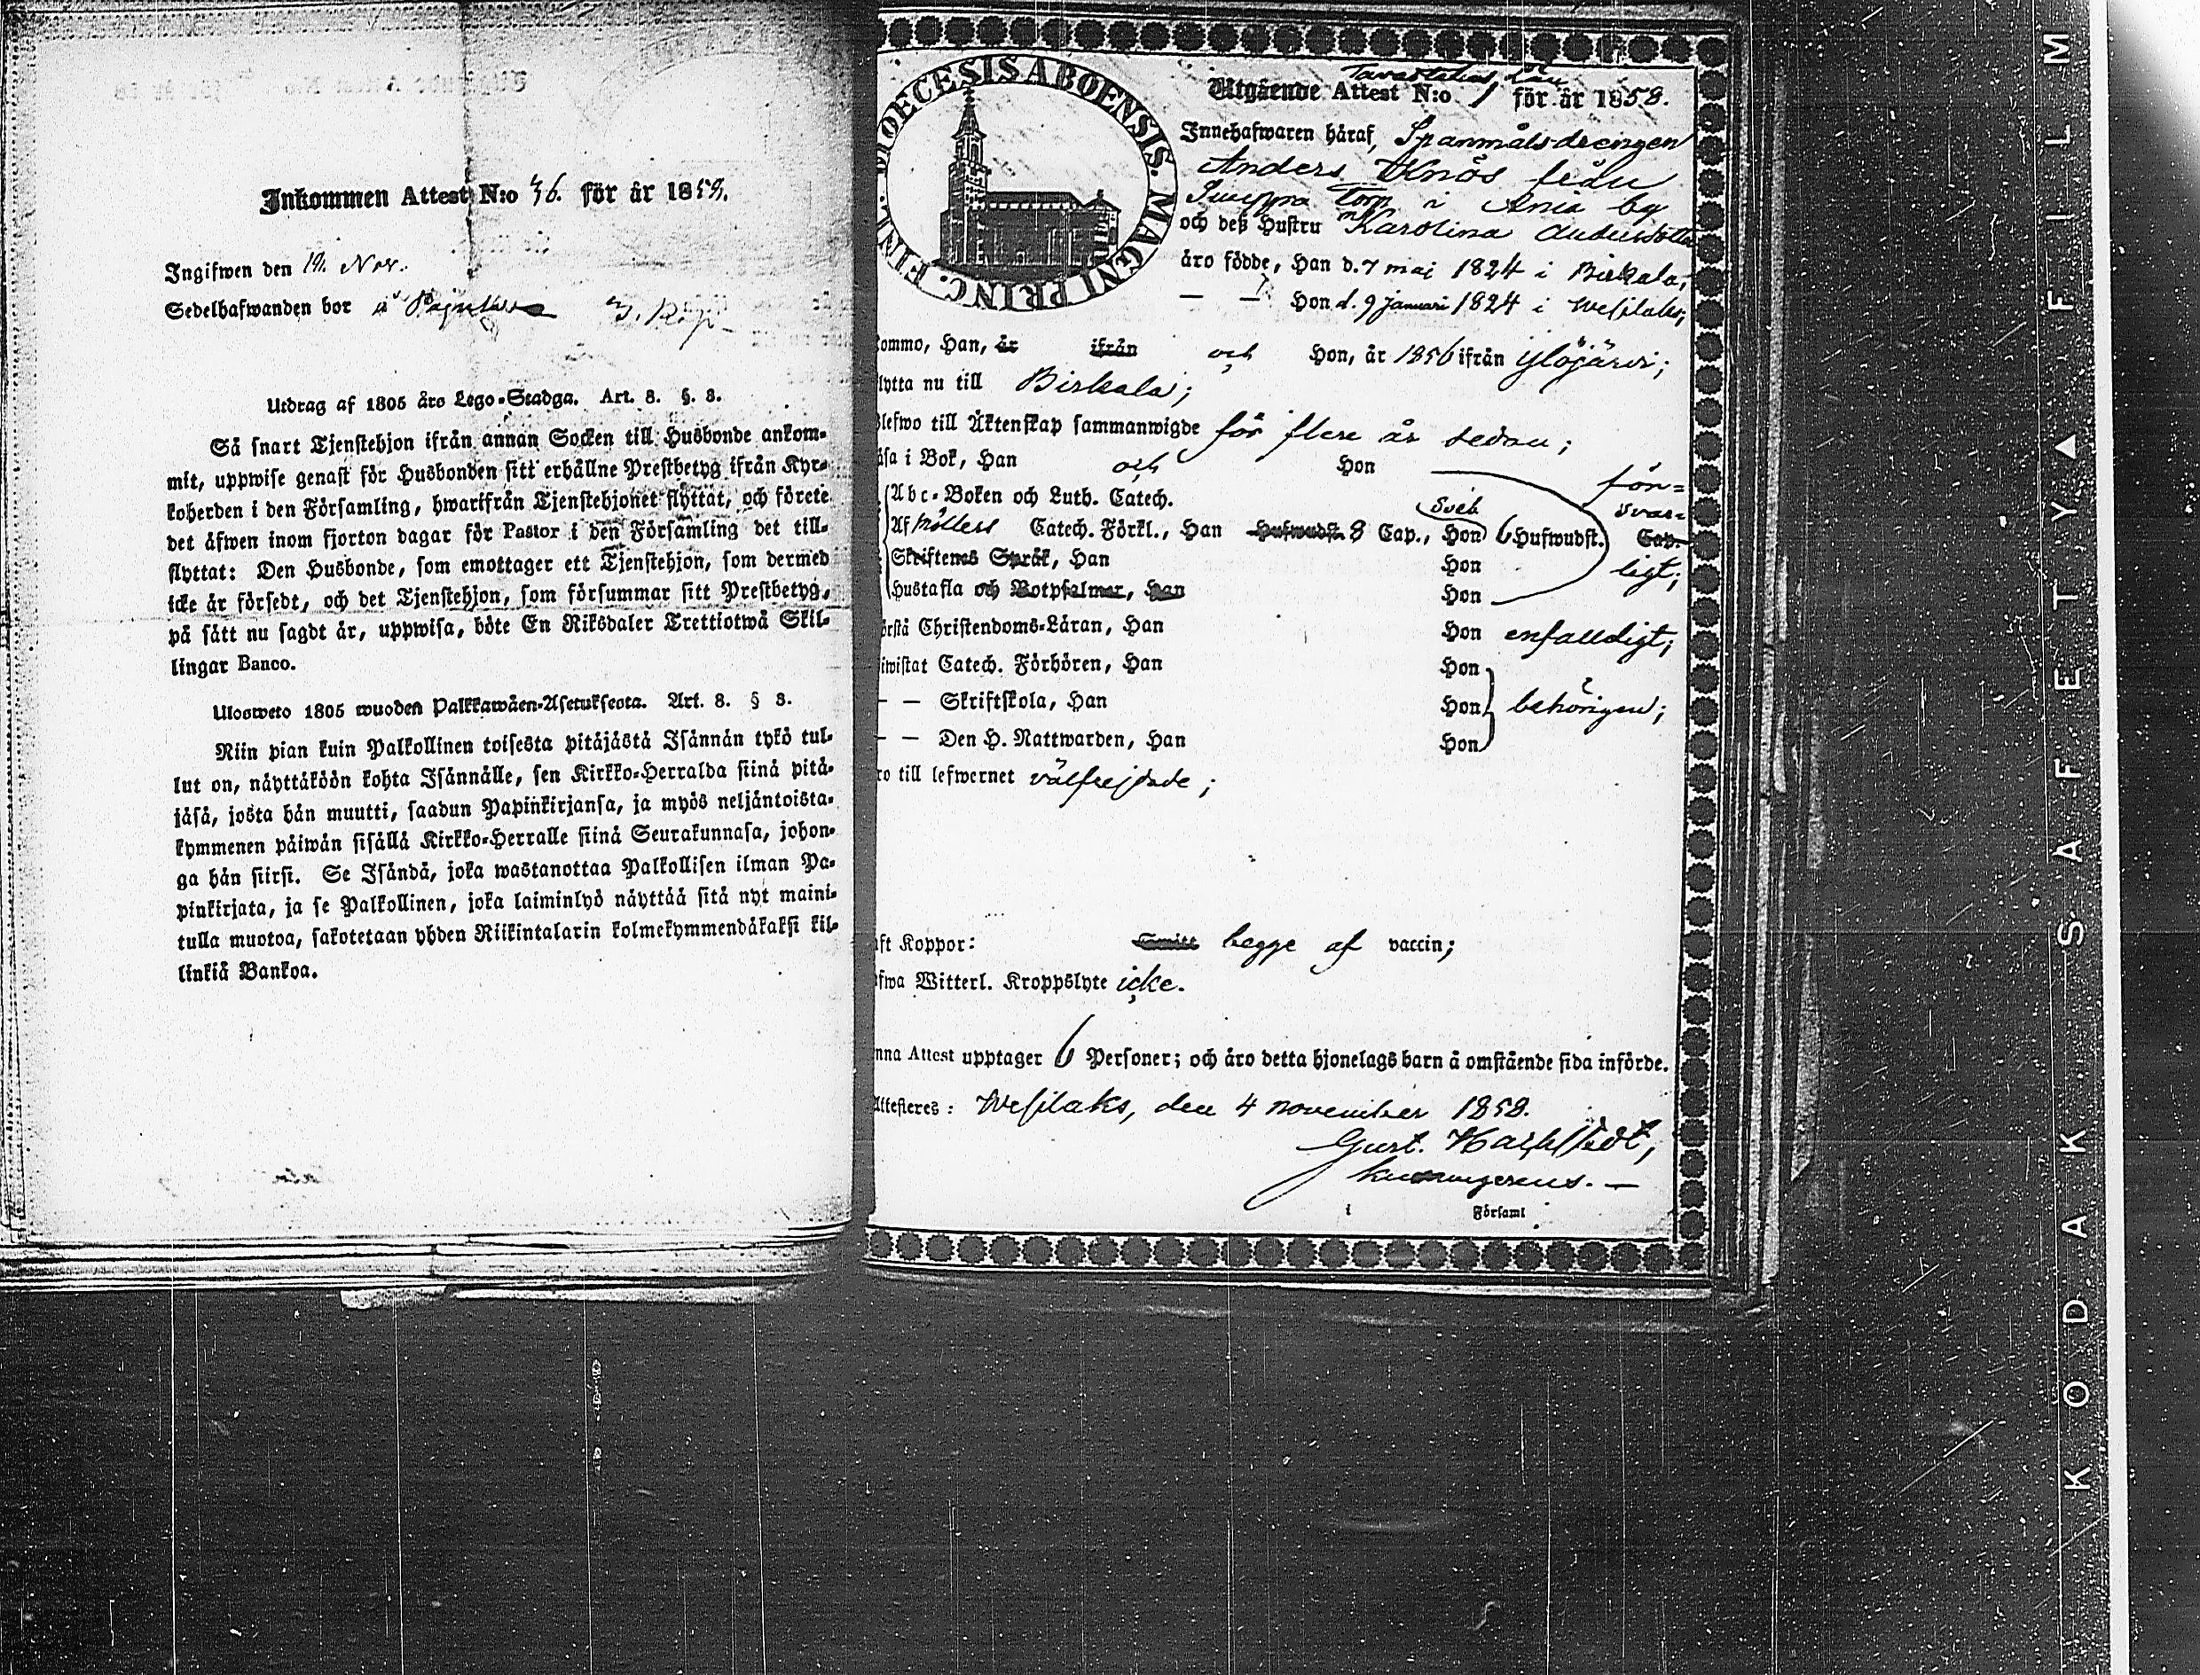 Inkommen Attest N:o 36. för år 1858.
Ingifwen den 19. Nov.
Sedelhafwanden bor
Utdrag af 1805 års Lego-Stadga. Art. 8. §. 8.
Så snart Tjenstehjon ifrån annan Socken till Husbonde ankom-
mit, uppwise genast för Husbonden sitt erhållne Prestbetyg ifrån Kyr-
koherden i den Församling, hwarifrån Tjenstehjonet flyttat, och förete
det äfwen inom fjorton dagar för Pastor i den Församling det till-
flyttat: Den Husbonde, som emottager ett Tjenstehjon, som dermed
icke är försedt, och det Tjenstehjon, som försummar sitt Prestbetyg,
på sätt nu sagdt är, uppwisa, böte En Riksdaler Trettiotwå Skil-
lingar Banco.
Ulosweto 1805 wuoden Palkkawäen-Asetuksesta. Art. 8. § 8.
Niin pian kuin Palkollinen toisesta pitäjästä Isännän tykö tul-
lut on, näyttäköön kohta Isännälle, sen Kirkko-Herralda siinä pitä-
jäsä, josta hän muutti, saadun Papinkirjansa, ja myös neljäntoista-
kymmenen päiwän sisällä Kirkko-Herralle siinä Seurakunnasa, johon-
ga hän siirsi. Se Isändä, joka wastanottaa Palkollisen ilman Pa-
pinkirjata, ja se Palkollinen, joka laiminlyö näyttää sitä nyt maini-
tulla muotoa, sakotetaan yhden Riikintalarin kolmekymmendäkaksi kil-
linkiä Bankoa.
DIOECESIS ABOENSIS. MAGNI PRINC. FINL.
Tavastehus Län
Utgående Attest N:o 1 för år 1858.
Innehafwaren häraf, Spanmålsdrengen
Anders Knös från
Torp i Ania by
och deß Hustru Karolina Andersdotter
äro födde, Han d. 7 maj 1824 i Birkala,
— — Hon d. 9 Januari 1824 i Wesilaks;
kommo, Han, år ifrån och Hon, år 1856 ifrån Ylöjärvi;
flytta nu till Birkala;
Blefwo till Äktenskap sammanwigde för flere år sedan;
läsa i Bok, Han och Hon för-
Abc-Boken och Luth. Catech. Sveb svar-
Af Möllers Catech. Förkl., Han Hufwudst. 8 Cap., Hon 6 Hufwudst. Cap.
Skriftenes Språk, Han Hon ligt;
Hustafla och Botpsalmer, Han Hon
örstå Christendoms-Läran, Han Hon enfalldigt;
iwistat Catech. Förhören, Han Hon
— — Skriftskola, Han Hon behörigen;
— — Den H. Nattwarden, Han Hon
ro till lefwernet välfrejdade;
aft Koppor: Smitt begge af vaccin;
afwa Witterl. Kroppslyte icke.
nna Attest upptager 6 Personer; och äro detta hjonelags barn å omstående sida införde.
Attesteres: Wesilaks, den 4 november 1858.
Gust. Harfstedt,
i Församl
KODAK SAFETY ▲ FILM